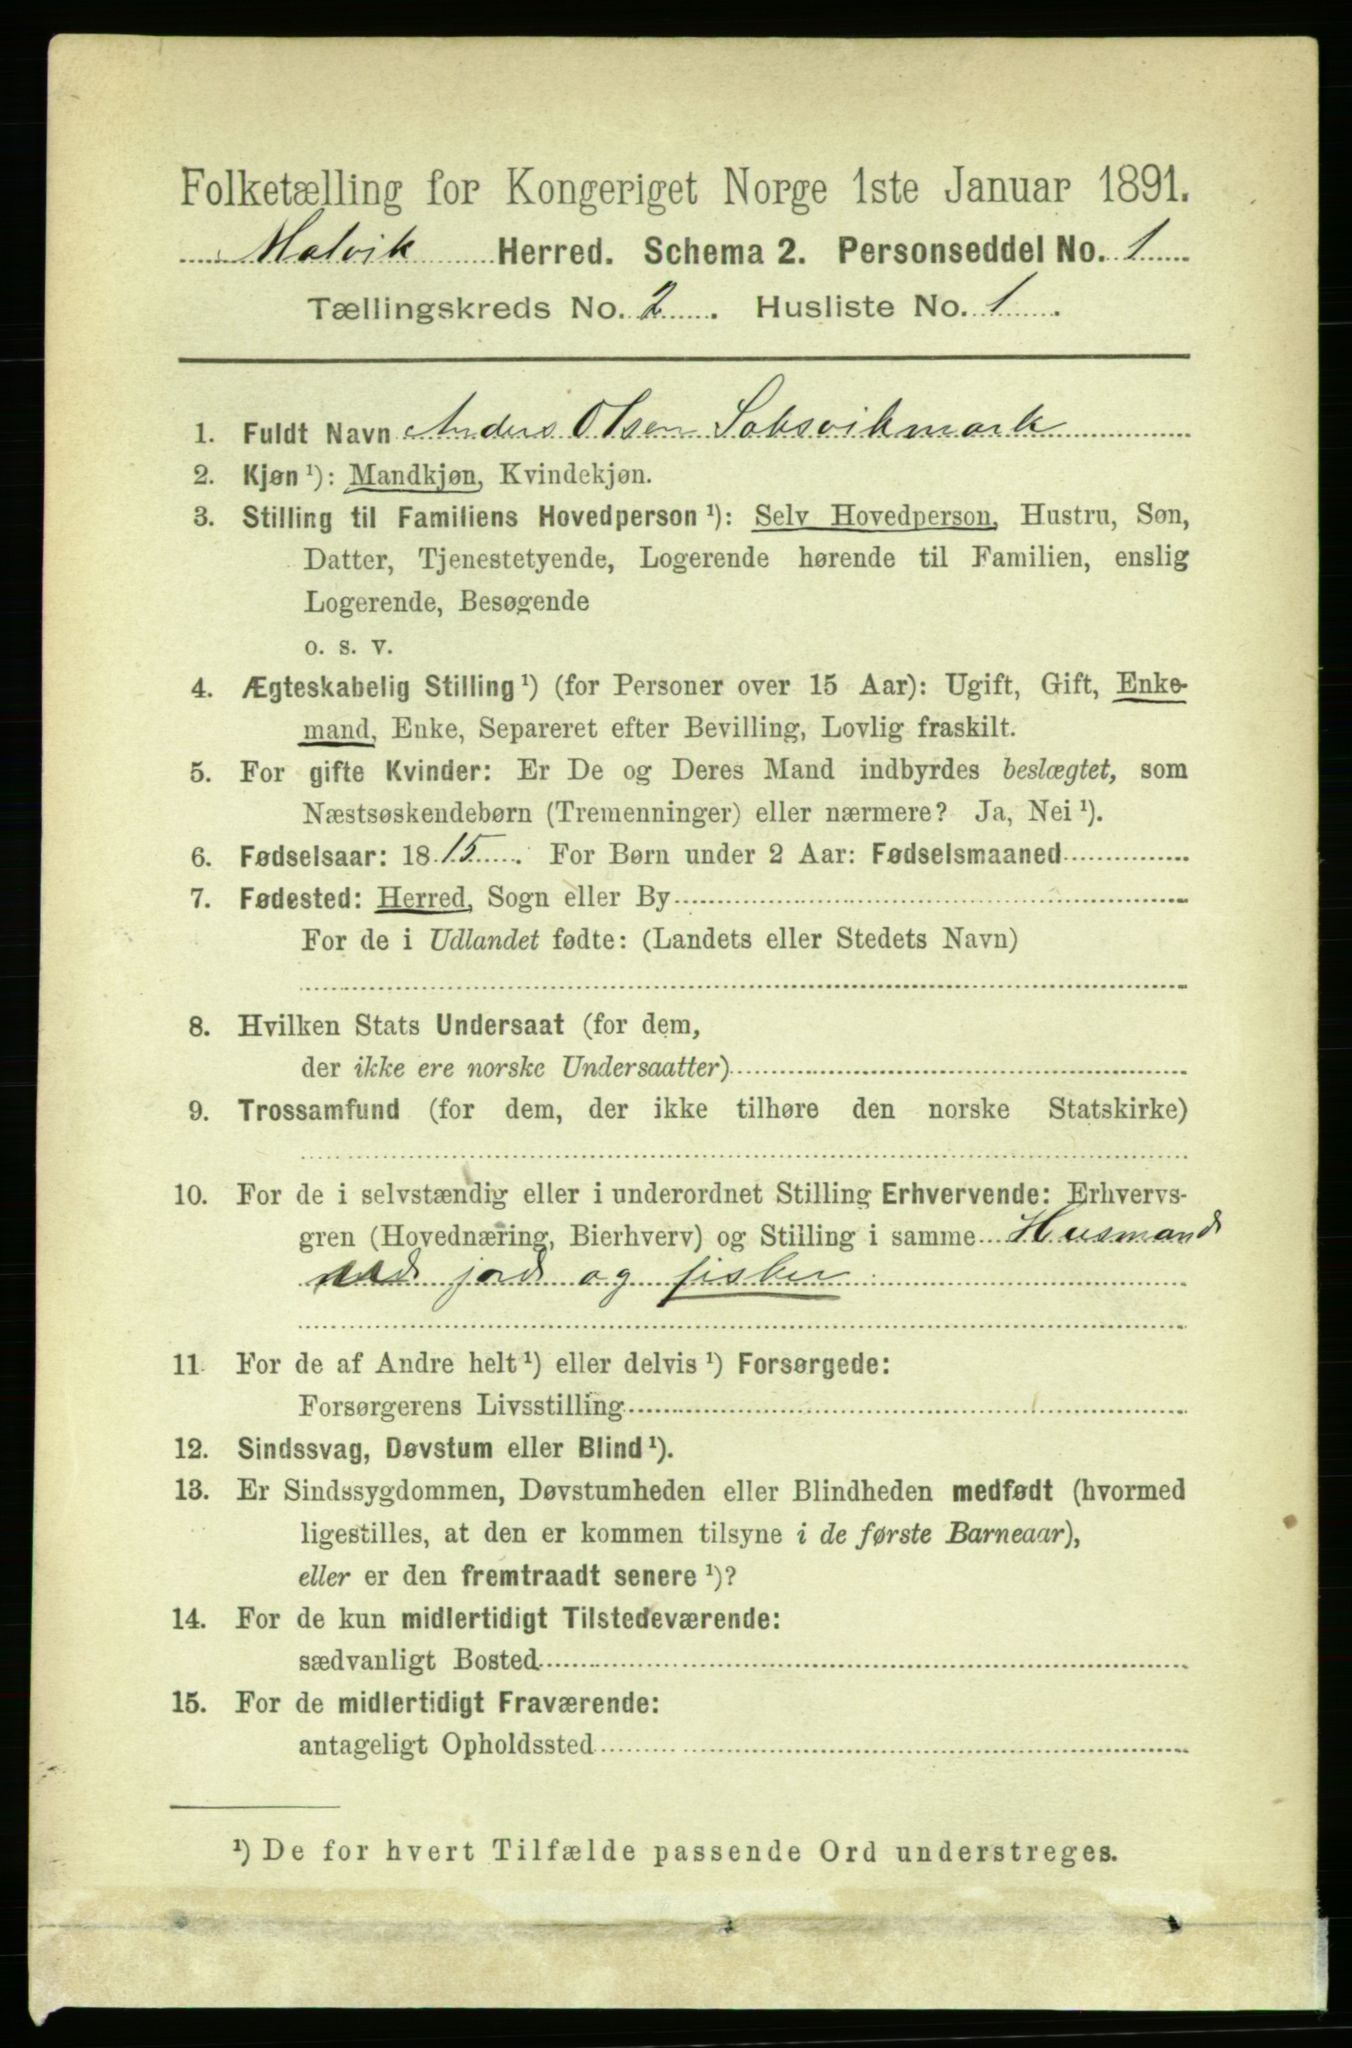 Folketælling for Kongeriget Norge 1ste Januar 1891.
Malvik Herred. Schema 2. Personseddel No. 1
Tællingskreds No. 2. Husliste No. 1.
1. Fuldt Navn Anders Olsen Saksvikmark
2. Kjøn ¹): Mandkjøn, Kvindekjøn.
3. Stilling til Familiens Hovedperson ¹): Selv Hovedperson, Hustru, Søn,
Datter, Tjenestetyende, Logerende hørende til Familien, enslig
Logerende, Besøgende
o. s. v.
4. Ægteskabelig Stilling ¹) (for Personer over 15 Aar): Ugift, Gift, Enke-
mand, Enke, Separeret efter Bevilling, Lovlig fraskilt.
5. For gifte Kvinder: Er De og Deres Mand indbyrdes beslægtet, som
Næstsøskendebørn (Tremenninger) eller nærmere? Ja, Nei ¹).
6. Fødselsaar: 1815. For Børn under 2 Aar: Fødselsmaaned
7. Fødested: Herred, Sogn eller By
For de i Udlandet fødte: (Landets eller Stedets Navn)
8. Hvilken Stats Undersaat (for dem,
der ikke ere norske Undersaatter)
9. Trossamfund (for dem, der ikke tilhøre den norske Statskirke)
10. For de i selvstændig eller i underordnet Stilling Erhvervende: Erhvervs-
gren (Hovednæring, Bierhverv) og Stilling i samme Husmand
jord og fisker
11. For de af Andre helt ¹) eller delvis ¹) Forsørgede:
Forsørgerens Livsstilling
12. Sindssvag, Døvstum eller Blind ¹).
13. Er Sindssygdommen, Døvstumheden eller Blindheden medfødt (hvormed
ligestilles, at den er kommen tilsyne i de første Barneaar),
eller er den fremtraadt senere ¹)?
14. For de kun midlertidigt Tilstedeværende:
sædvanligt Bosted
15. For de midlertidigt Fraværende:
antageligt Opholdssted
¹) De for hvert Tilfælde passende Ord understreges.